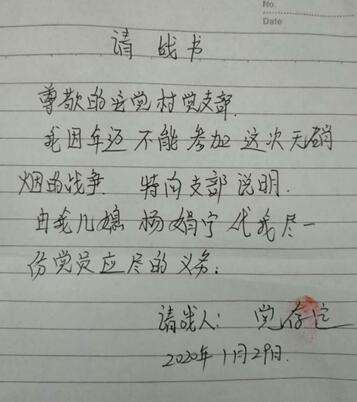 No.
Date
请战书
尊敬的安党村党支部
我因年迈不能参加这次无硝
烟的战争 特向支部说明.
由我儿媳 杨娟宁 代我尽一
份党员应尽的义务.
请战人: 党存
2020年1月29日.